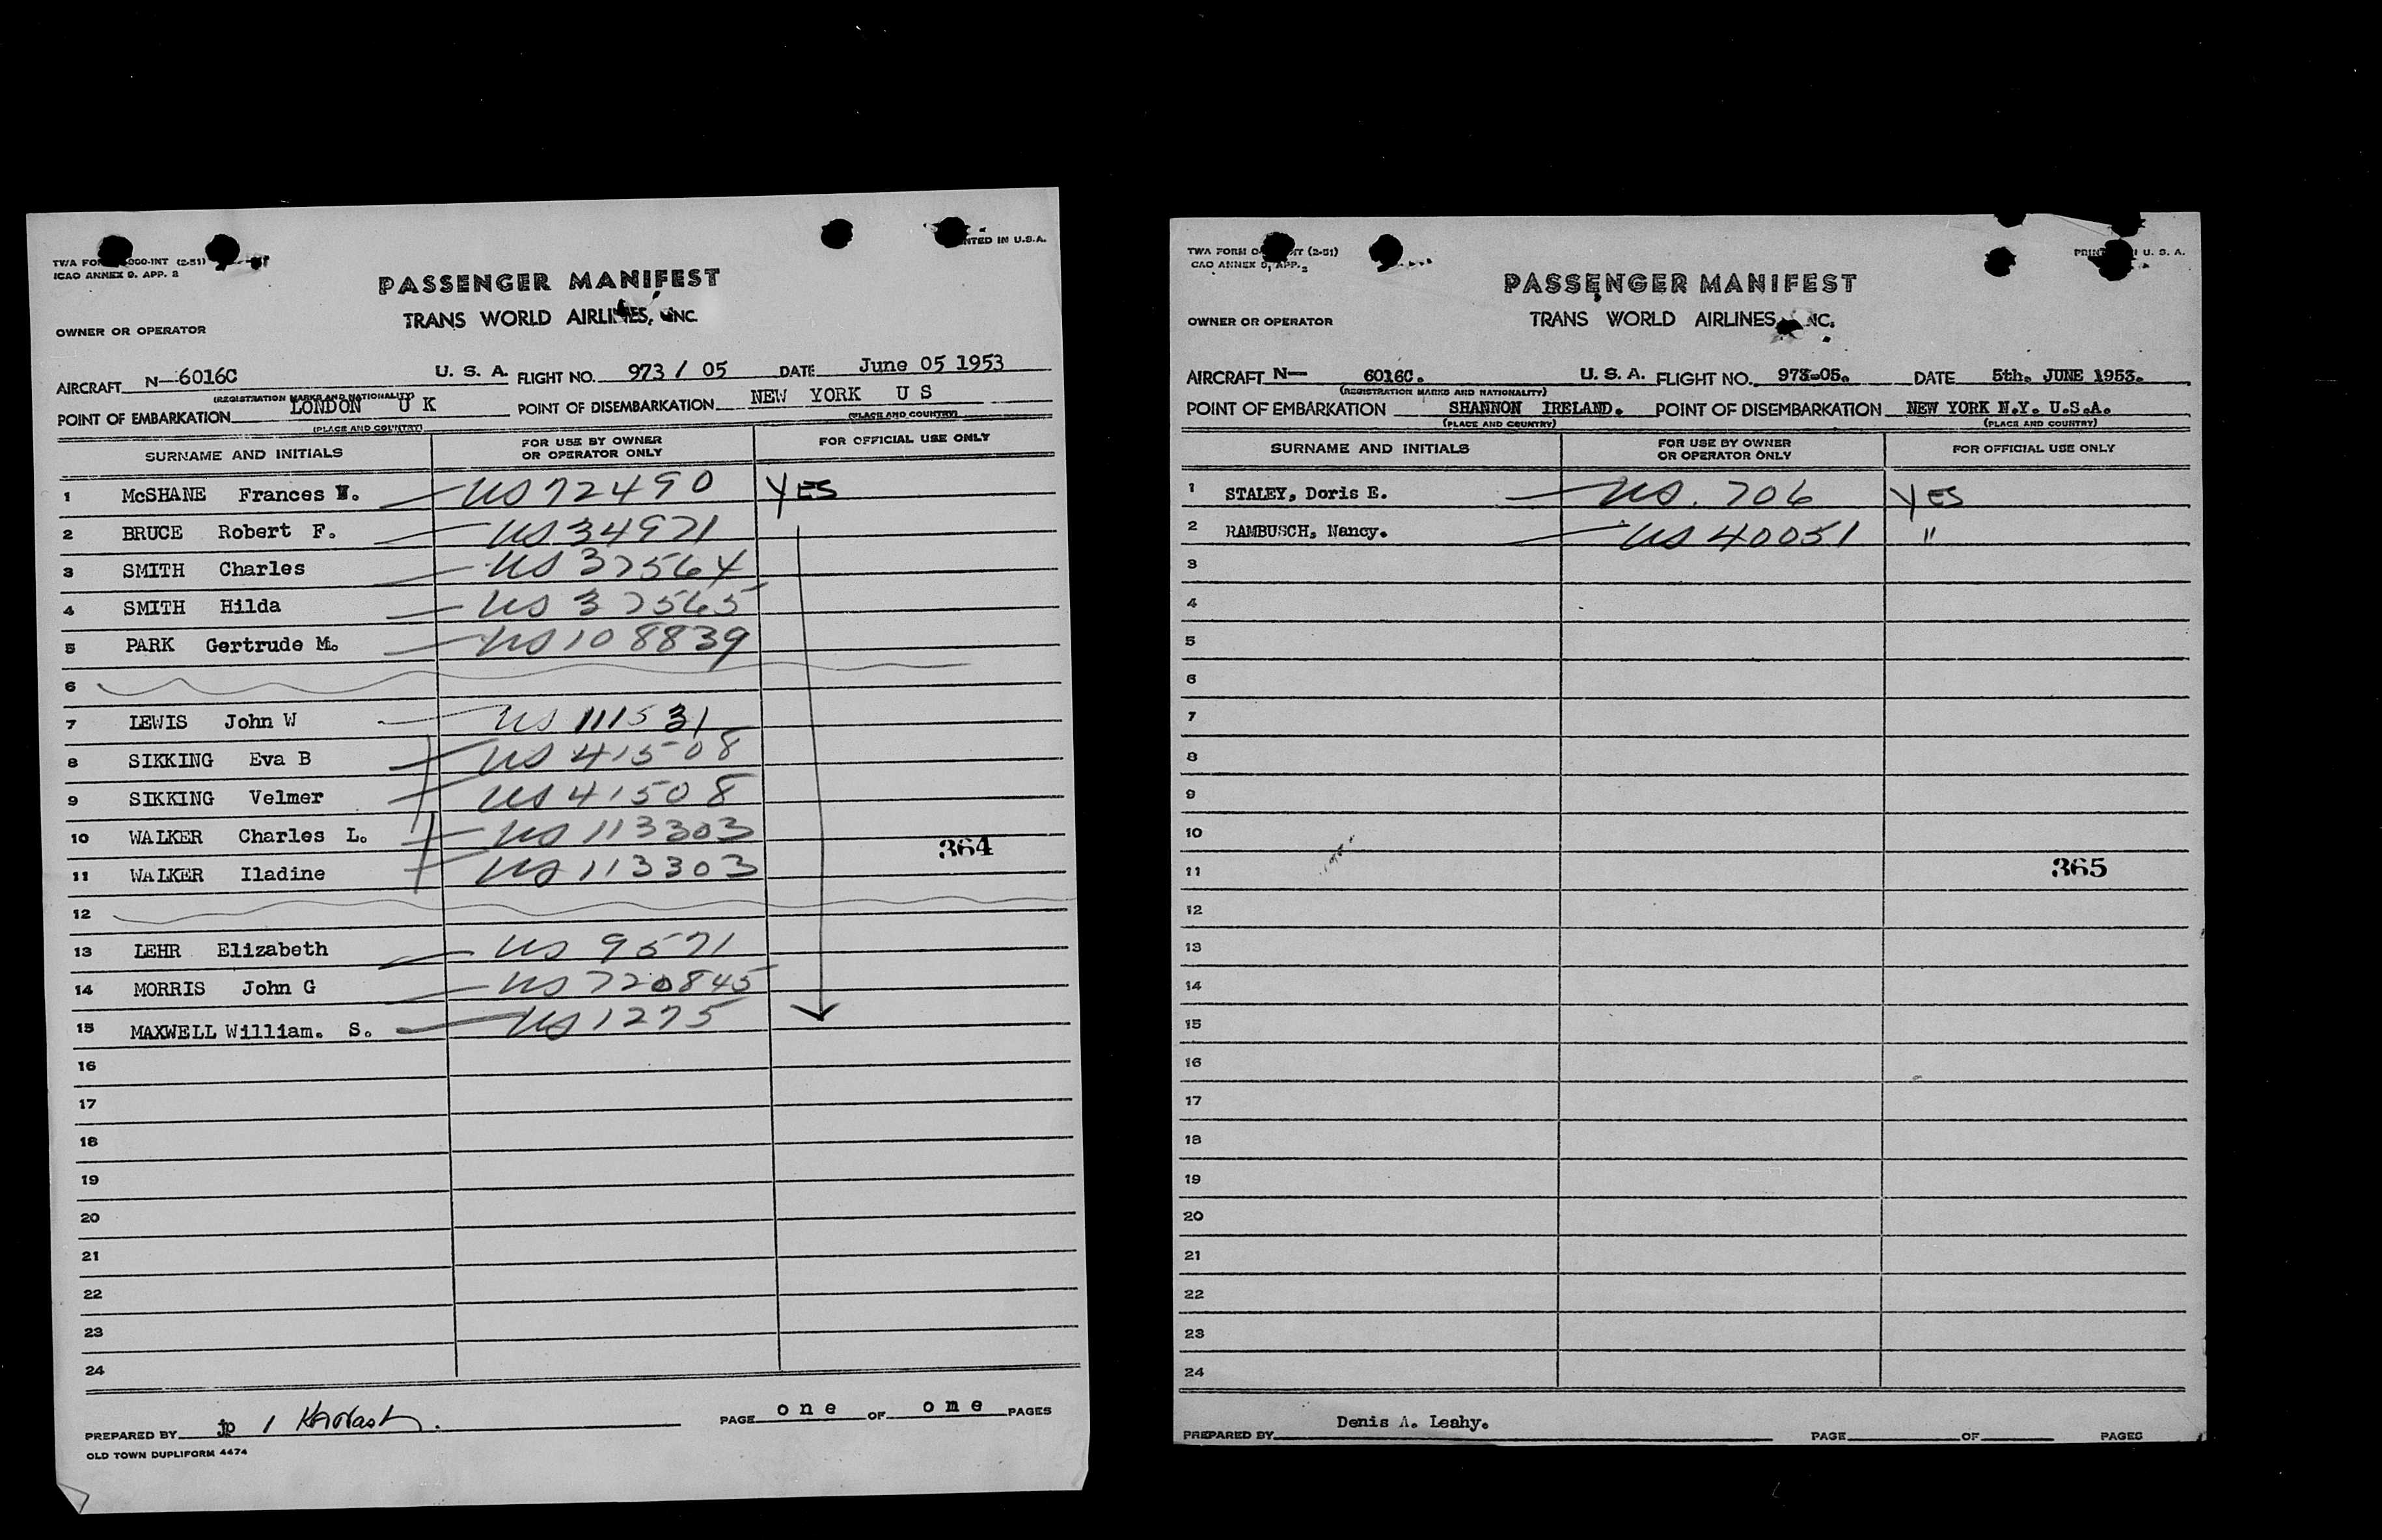 TWA FO 000-INT (2-51)
NTED IN U.S.A.
ICAO ANNEX 9. APP. 2
PASSENGER MANIFEST
TRANS WORLD AIRLINES, INC.
OWNER OR OPERATOR
AIRCRAFT N-6016C U. S. A. FLIGHT NO. 973 / 05 DATE June 05 1953
(REGISTRATION MARKS AND NATIONALITY)
POINT OF EMBARKATION LONDON U K POINT OF DISEMBARKATION NEW YORK U S
(PLACE AND COUNTRY) (PLACE AND COUNTRY)
SURNAME AND INITIALS FOR USE BY OWNER OR OPERATOR ONLY FOR OFFICIAL USE ONLY
1 McSHANE Frances W. US 72490 YES
2 BRUCE Robert F. US 34971
3 SMITH Charles US 37564
4 SMITH Hilda US 37565
5 PARK Gertrude M. US 108839
6
7 LEWIS John W US 111531
8 SIKKING Eva B US 41508
9 SIKKING Velmer US 41508
10 WALKER Charles L. US 113303
364
11 WALKER Iladine US 113303
12
13 LEHR Elizabeth US 9571
14 MORRIS John G US 720845
15 MAXWELL William. S. US 1275
16
17
18
19
20
21
22
23
24
PREPARED BY jp / PAGE one OF one PAGES
OLD TOWN DUPLIFORM 4474
TWA FORM O NT (2-51)
PRIN U. S. A.
CAO ANNEX 9, APP. 2
PASSENGER MANIFEST
TRANS WORLD AIRLINES, NC.
OWNER OR OPERATOR
AIRCRAFT N- 6016C. U. S. A. FLIGHT NO. 973-05. DATE 5th. JUNE 1953.
(REGISTRATION MARKS AND NATIONALITY)
POINT OF EMBARKATION SHANNON IRELAND. POINT OF DISEMBARKATION NEW YORK N.Y. U.S.A.
(PLACE AND COUNTRY) (PLACE AND COUNTRY)
SURNAME AND INITIALS FOR USE BY OWNER OR OPERATOR ONLY FOR OFFICIAL USE ONLY
1 STALEY, Doris E. US. 706 YES
2 RAMBUSCH, Nancy. US 40051 "
3
4
5
6
7
8
9
10
11 365
12
13
14
15
16
17
18
19
20
21
22
23
24
Denis A. Leahy.
PREPARED BY PAGE OF PAGES